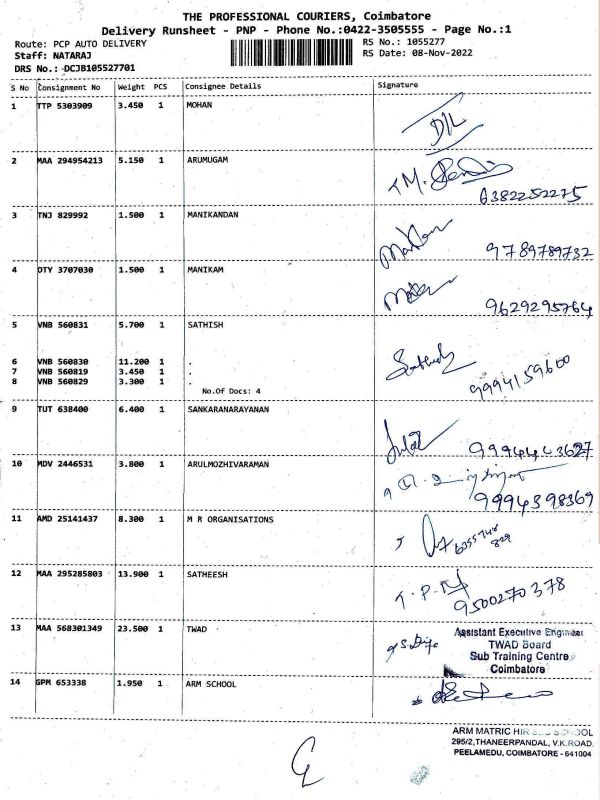 THE PROFESSIONAL COURIERS, Coimbatore
Delivery Runsheet - PNP - Phone No.:0422-3505555 - Page No.:1
Route: PCP AUTO DELIVERY
RS No.: 1055277
Staff: NATARAJ
RS Date: 08-Nov-2022
DRS No.: DCJB105527701
S No Consignment No Weight PCS Consignee Details Signature
1 TTP 5303909 3.450 1 MOHAN
2 MAA 294954213 5.150 1 ARUMUGAM
6382252275
3 TNJ 829992 1.500 1 MANIKANDAN
9789789732
4 DTY 3707030 1.500 1 MANIKAM
9629295764
5 VNB 560831 5.700 1 SATHISH
6 VNB 560830 11.200 1 .
7 VNB 560819 3.450 1 .
8 VNB 560829 3.300 1 .
9994159600
No.Of Docs: 4
9 TUT 638400 6.400 1 SANKARANARAYANAN
9994443627
10 MDV 2446531 3.800 1 ARULMOZHIVARAMAN
9994398369
11 AMD 25141437 8.300 1 M R ORGANISATIONS
12 MAA 295285803 13.900 1 SATHEESH
9500270378
13 MAA 568301349 23.500 1 TWAD
Assistant Executive Engineer
TWAD Board
Sub Training Centre
Coimbatore
14 GPM 653338 1.950 1 ARM SCHOOL
ARM MATRIC HIR SEC SCHOOL
295/2,THANEERPANDAL, V.K.ROAD,
PEELAMEDU, COIMBATORE - 641004